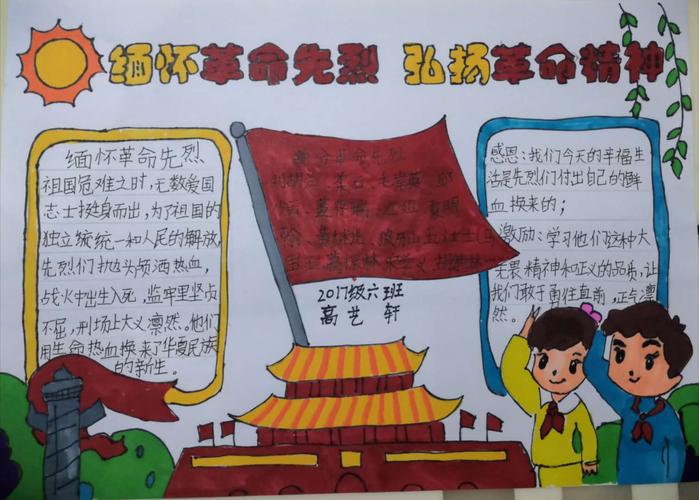 缅怀革命先烈 弘扬革命精神
缅怀革命先烈
祖国危难之时,无数爱国
志士挺身而出,为了祖国的
独立统统一和人民的解放,
先烈们抛头颅洒热血,
战火中出生入死,监牢里坚贞
不屈,刑场上大义凛然。他们
用生命热血换来了华夏民族
的新生。
部分革命先烈
刘胡兰、 毛岸英、邱
董存瑞、江姐
黄继光、狼牙山五壮士(马
2017级六班
高艺轩
感恩:我们今天的幸福生
活是先烈们付出自己的鲜
血换来的;
激励:学习他们这种大
无畏精神和正义的品质,让
我们敢于勇往直前,正气凛
然。